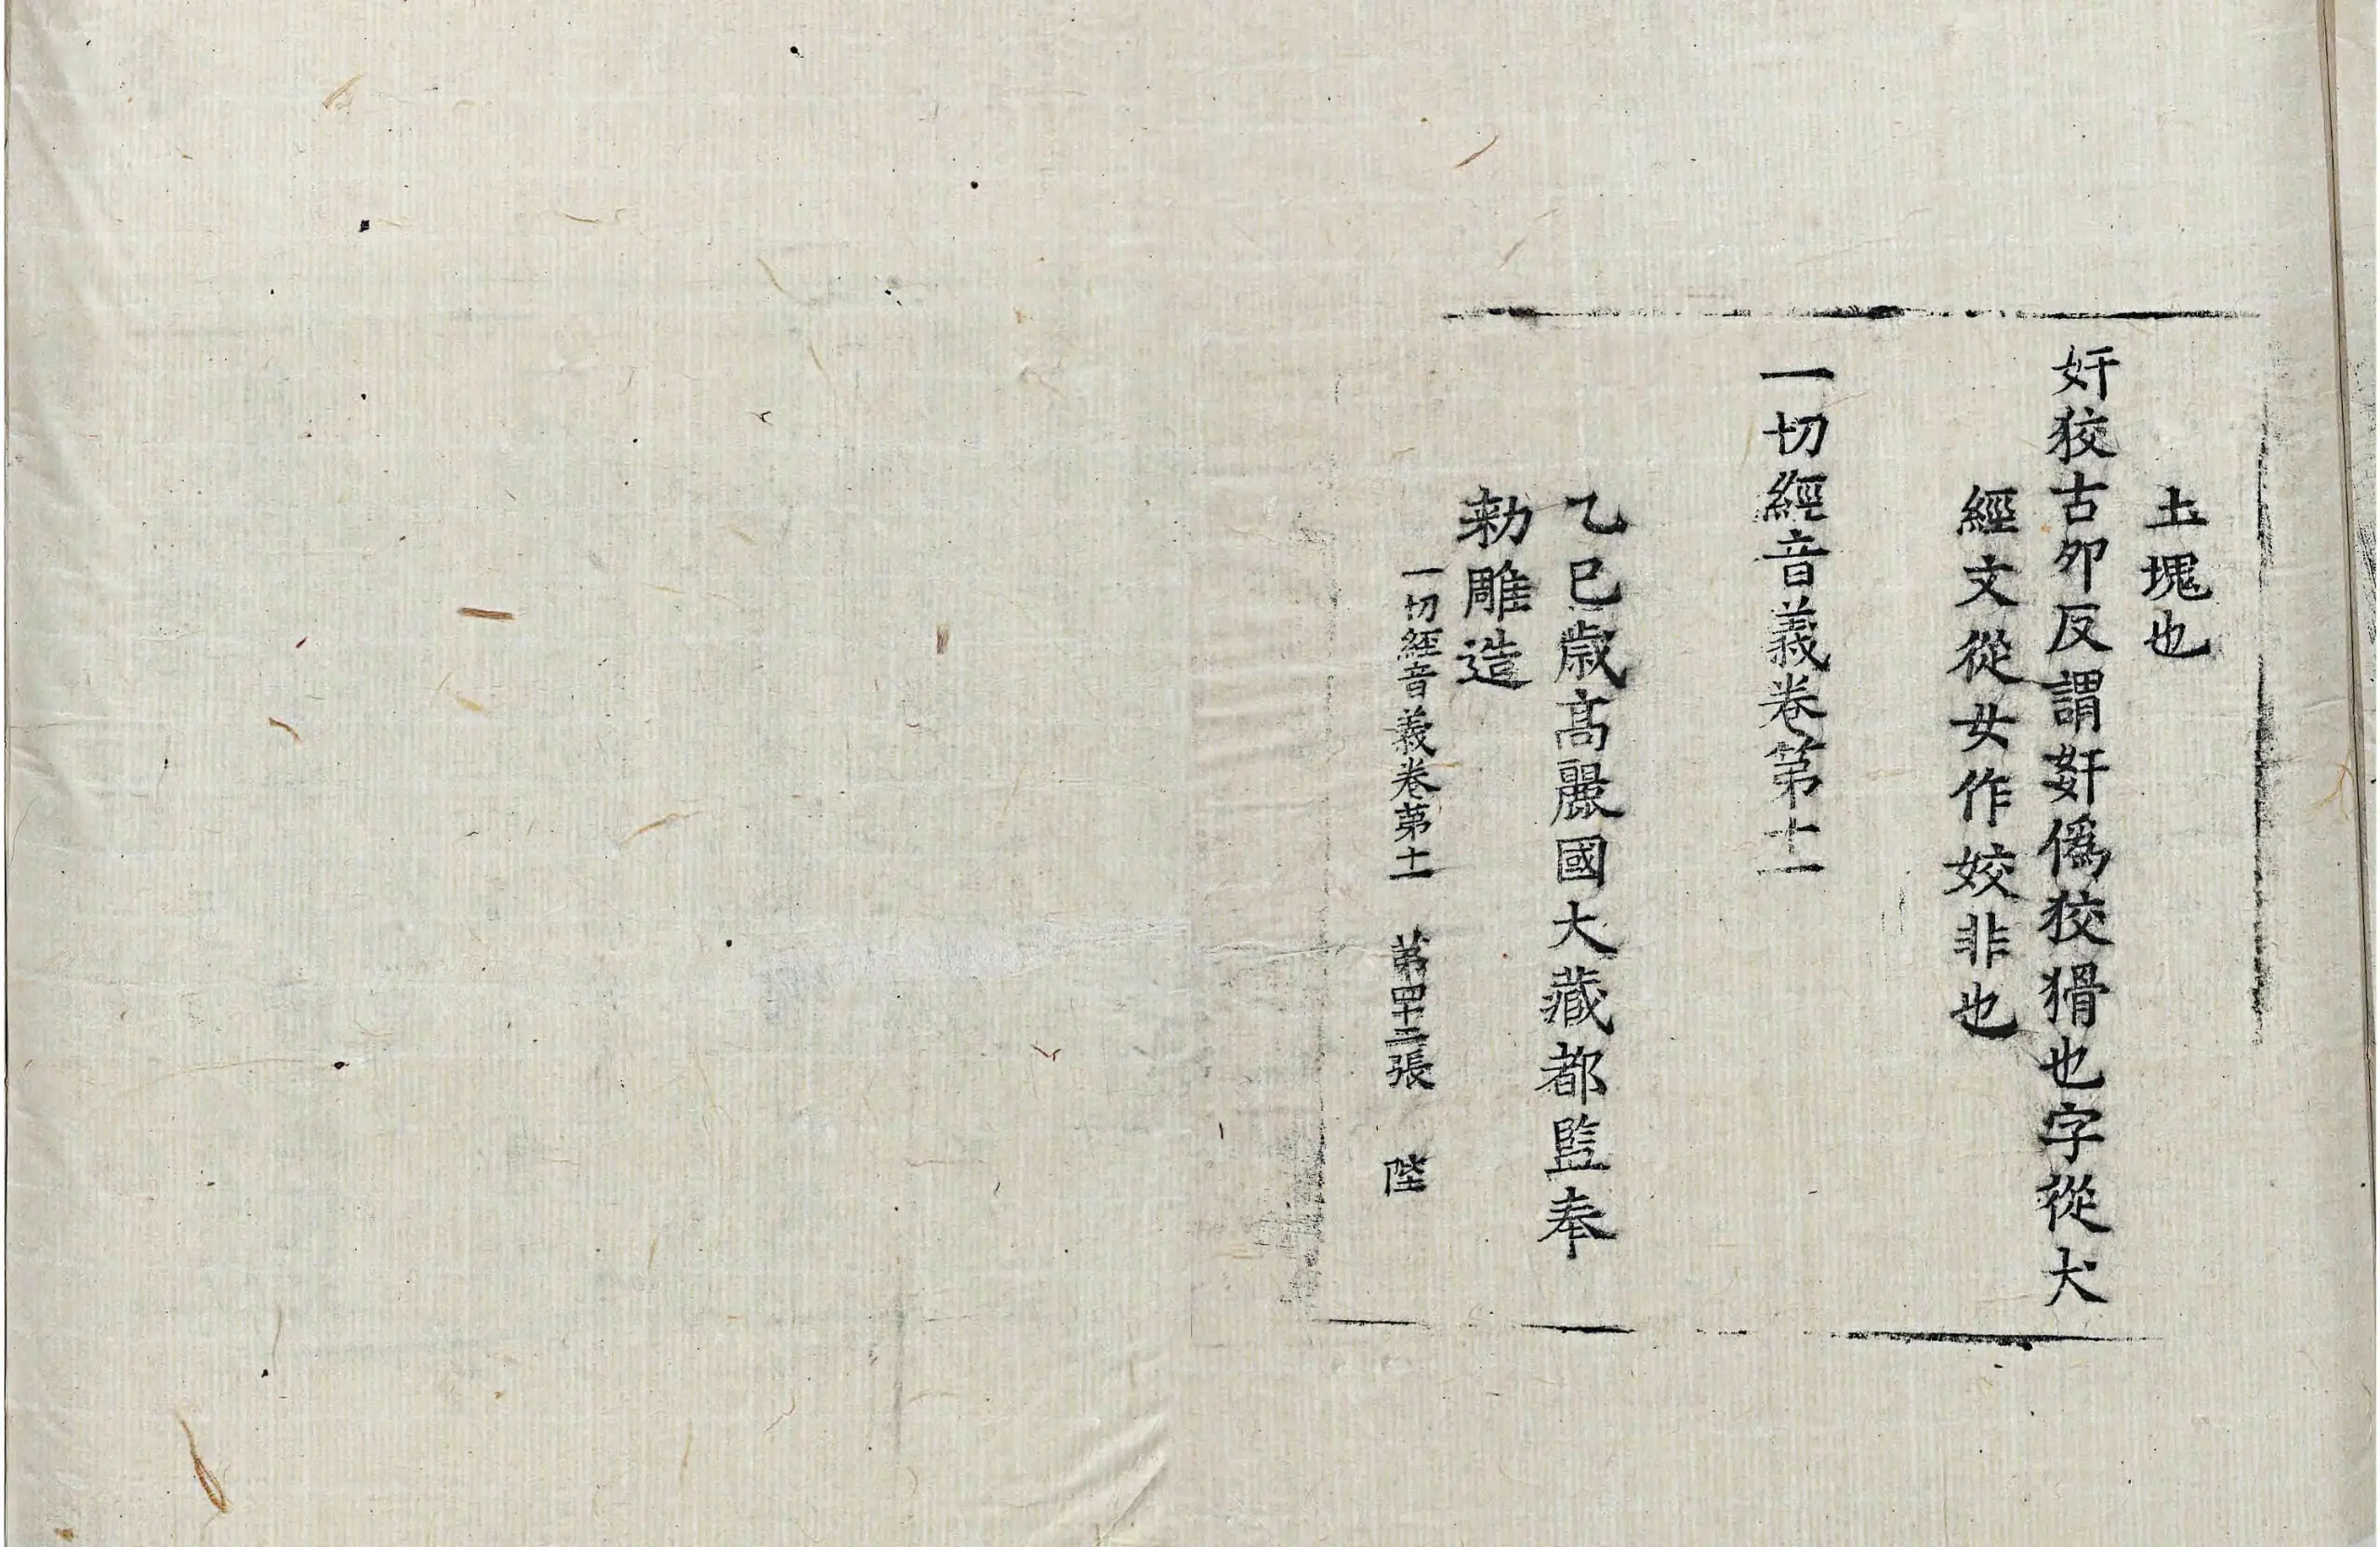 土塊也
奸狡古夘反謂姧僞狡猾也字從犬
經文從女作姣非也
一切經音義卷第十一
乙巳歳高麗國大藏都監奉
勅雕造
一切經音義卷第十一 第四十二張 陛